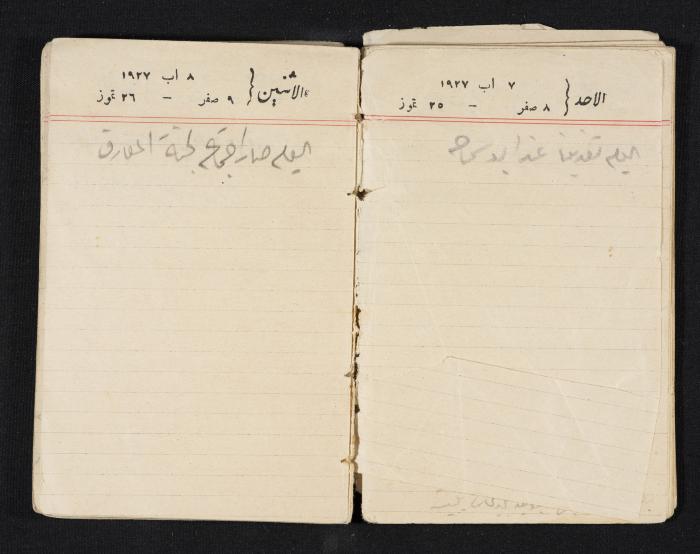 الاحد
٧ اب ١٩٢٧
٨ صفر — ٢٥ تموز
اليوم تغذينا عند ابو سماحه
الاثنين
٨ اب ١٩٢٧
٩ صفر — ٢٦ تموز
اليوم صار اجتماع لجنة المعارف